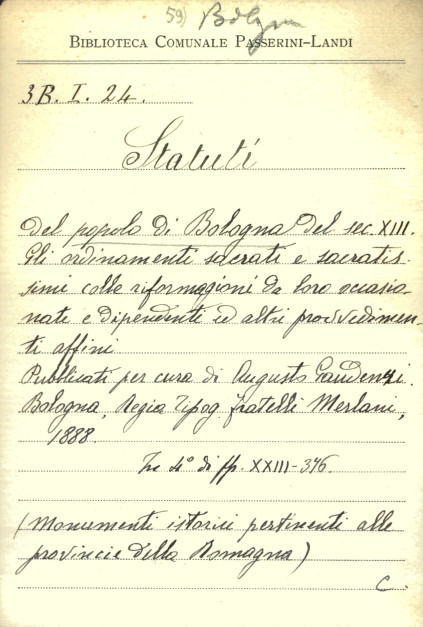 59) Bologna
BIBLIOTECA COMUNALE PASSERINI-LANDI
3B. I. 24.
Statuti
Del popolo di Bologna del sec. XIII.
Gli ordinamenti sacrati e sacratis-
simi colle riformagioni da loro occasio-
nate e dipendenti ed altri provvedimen-
ti affini
Pubblicati per cura di Augusto Gaudenzi.
Bologna, Regia Tipog. fratelli Merlani,
1888
In 4° di pp. XXIII-376.
(Monumenti istorici pertinenti alle
provincie della Romagna)
C.